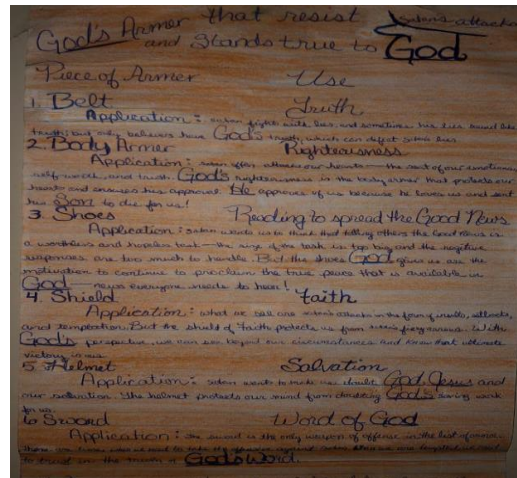 God's Armer that resist Satan's attacks
and Stands true to God
Piece of Armer Use
1. Belt Truth
Application: satan fights with lies, and sometimes his lies sound like
truth; but only believers have God's truth, which can defeat satan lies
2. Body Armer Righteousness
Application: satan often attacks our hearts — the seat of our emotions,
self-worth, and trust. God's righteousness is the body armer that protects our
hearts and ensures his approval. He approves of us because he loves us and sent
his Son to die for us!
3. Shoes Reading to spread the Good News
Application: Satan wants us to think that telling others the Good news is
a worthless and hopeless task — the size of the task is too big and the negitive
responses are too much to handle. But the shoes God gives us are the
motivation to continue to proclaim the true peace that is available in
God — news everyone needs to hear!
4. Shield faith
Application: what we see are satan's attacks in the form of insults, setbacks,
and temptation. But the shield of faith protects us from arrows. With
God's perspective, we can see beyond our circumstances and know that ultimate
victory is ours
5. Helmet Salvation
Application: satan wants to make us doubt God, Jesus and
our salvation. The helmet protects our mind from doubting God's saving work
for us.
6. Sword Word of God
Application: the sword is the only weapon of offense in the list of armer.
there are times when we need to take the offensive against satan. When we are tempted we need
to trust in the truth of God's Word.